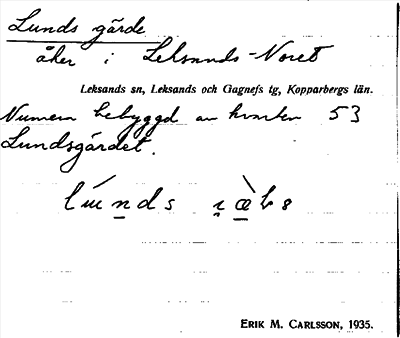 Lunds gärde
åker i Leksands-Noret
Leksands sn, Leksands och Gagnefs tg, Kopparbergs län.
Numera bebyggd av kvarter 53
Lundsgärdet.
ERIK M. CARLSSON, 1935.